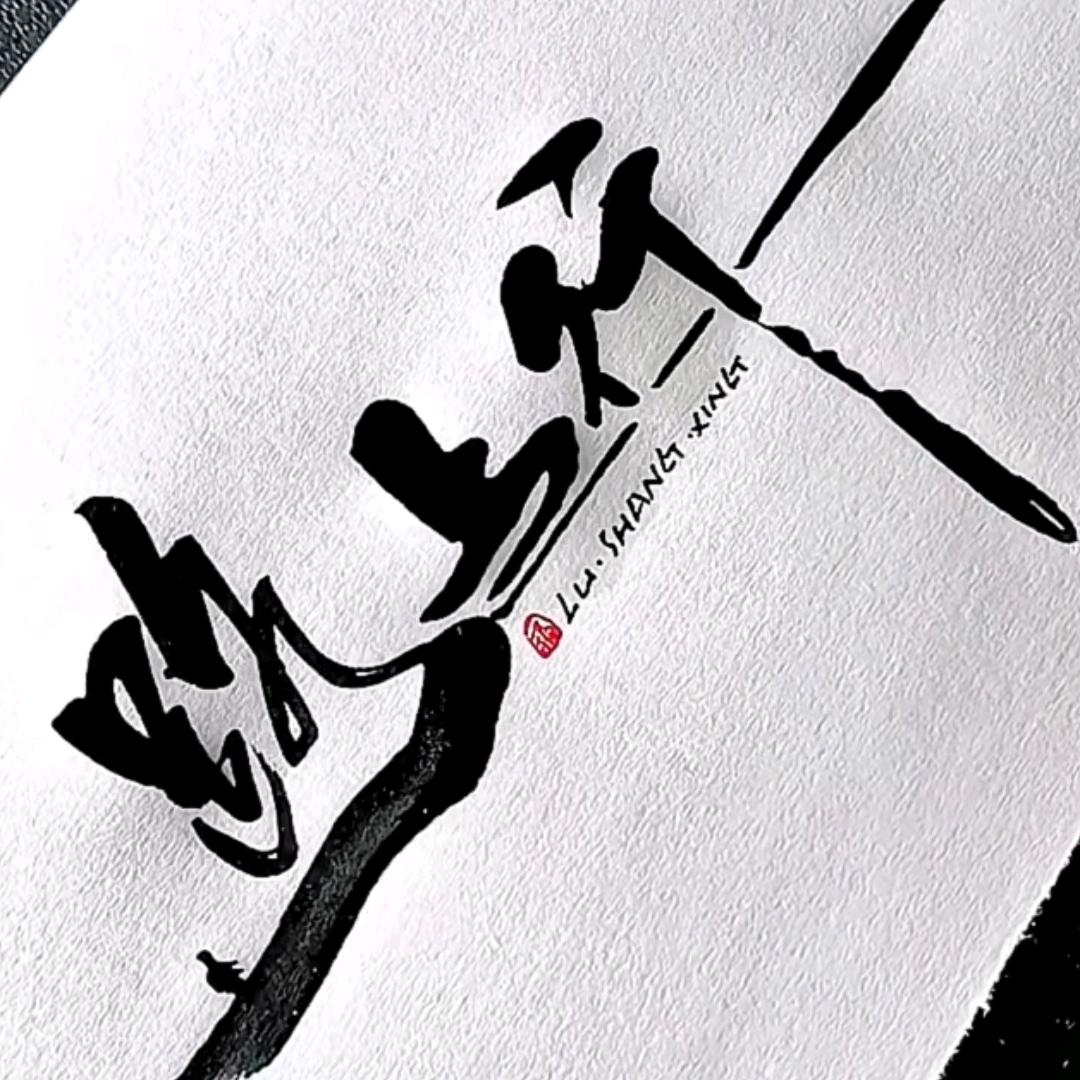 路上行
LU.SHANG.XING